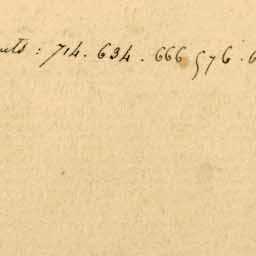 : 714. 634. 666 576.